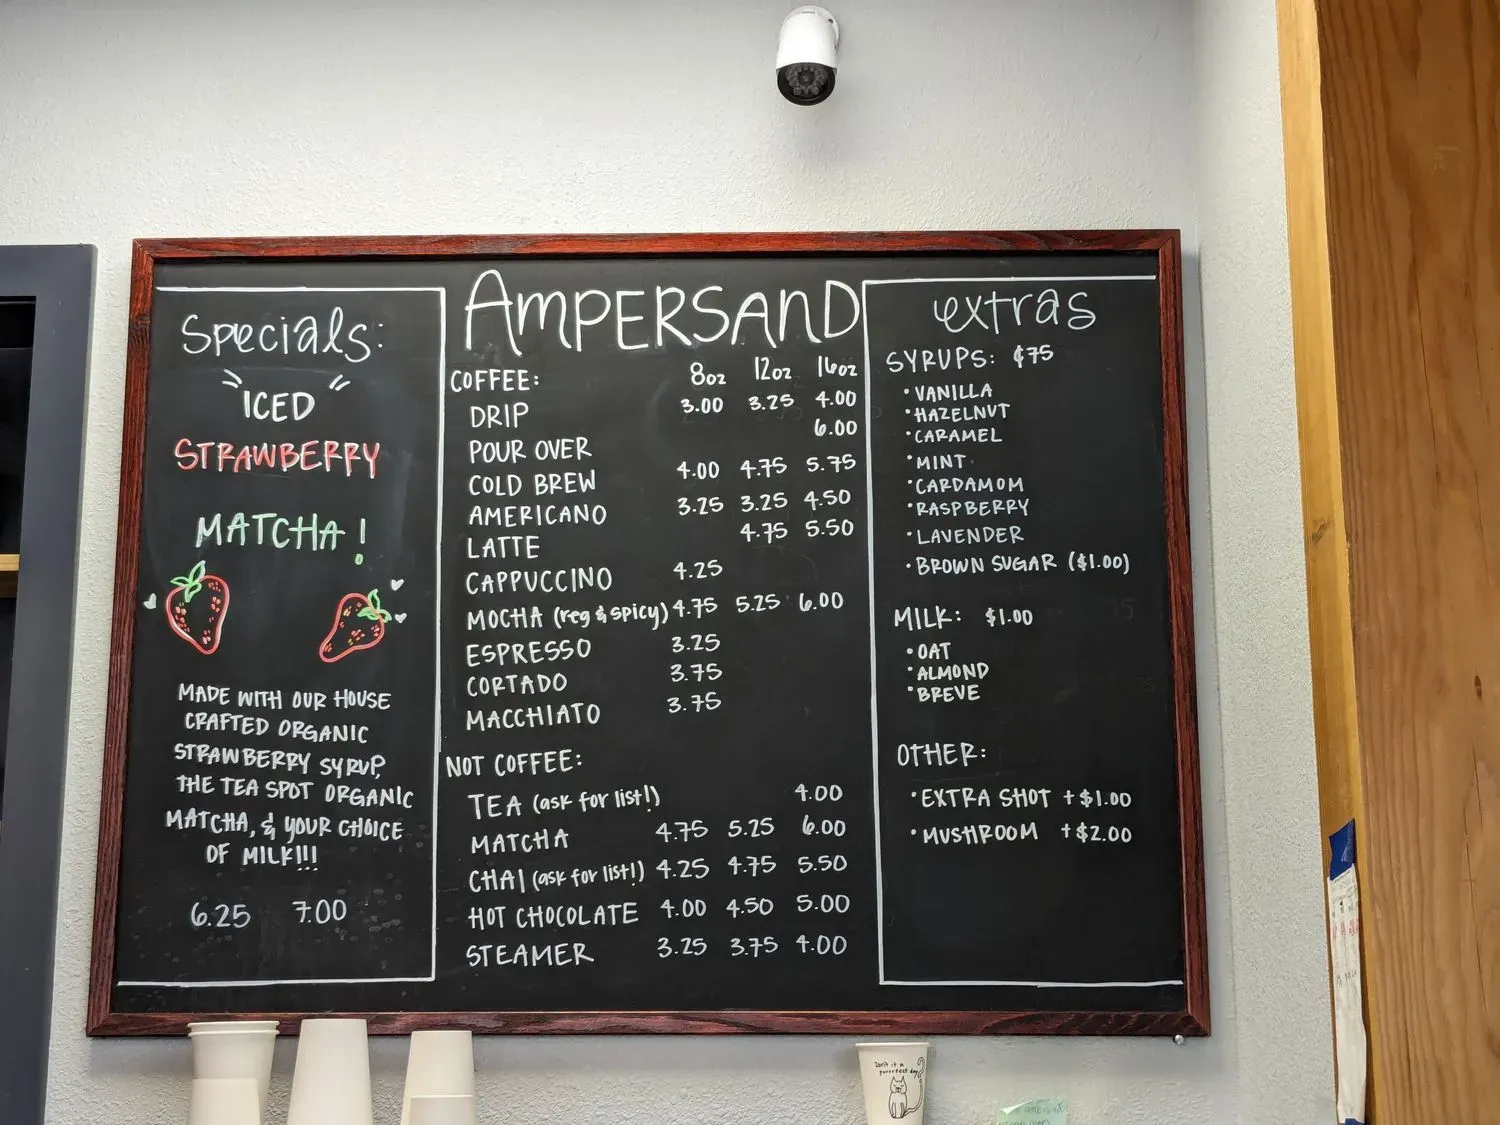 Specials:
ICED
STRAWBERRY
MATCHA!
MADE WITH OUR HOUSE
CRAFTED ORGANIC
STRAWBERRY SYRUP,
THE TEA SPOT ORGANIC
MATCHA, & YOUR CHOICE
OF MILK!!!
6.25 7.00
AMPERSAND
COFFEE: 8oz 12oz 16oz
DRIP 3.00 3.25 4.00
POUR OVER 6.00
COLD BREW 4.00 4.75 5.75
AMERICANO 3.25 3.25 4.50
LATTE 4.75 5.50
CAPPUCCINO 4.25
MOCHA (reg & spicy) 4.75 5.25 6.00
ESPRESSO 3.25
CORTADO 3.75
MACCHIATO 3.75
NOT COFFEE:
TEA (ask for list!) 4.00
MATCHA 4.75 5.25 6.00
CHAI (ask for list!) 4.25 4.75 5.50
HOT CHOCOLATE 4.00 4.50 5.00
STEAMER 3.25 3.75 4.00
extras
SYRUPS: ¢75
• VANILLA
• HAZELNUT
• CARAMEL
• MINT
• CARDAMOM
• RASPBERRY
• LAVENDER
• BROWN SUGAR ($1.00)
MILK: $1.00
• OAT
• ALMOND
• BREVE
OTHER:
• EXTRA SHOT +$1.00
• MUSHROOM +$2.00
Isn't it a
purrrfect day